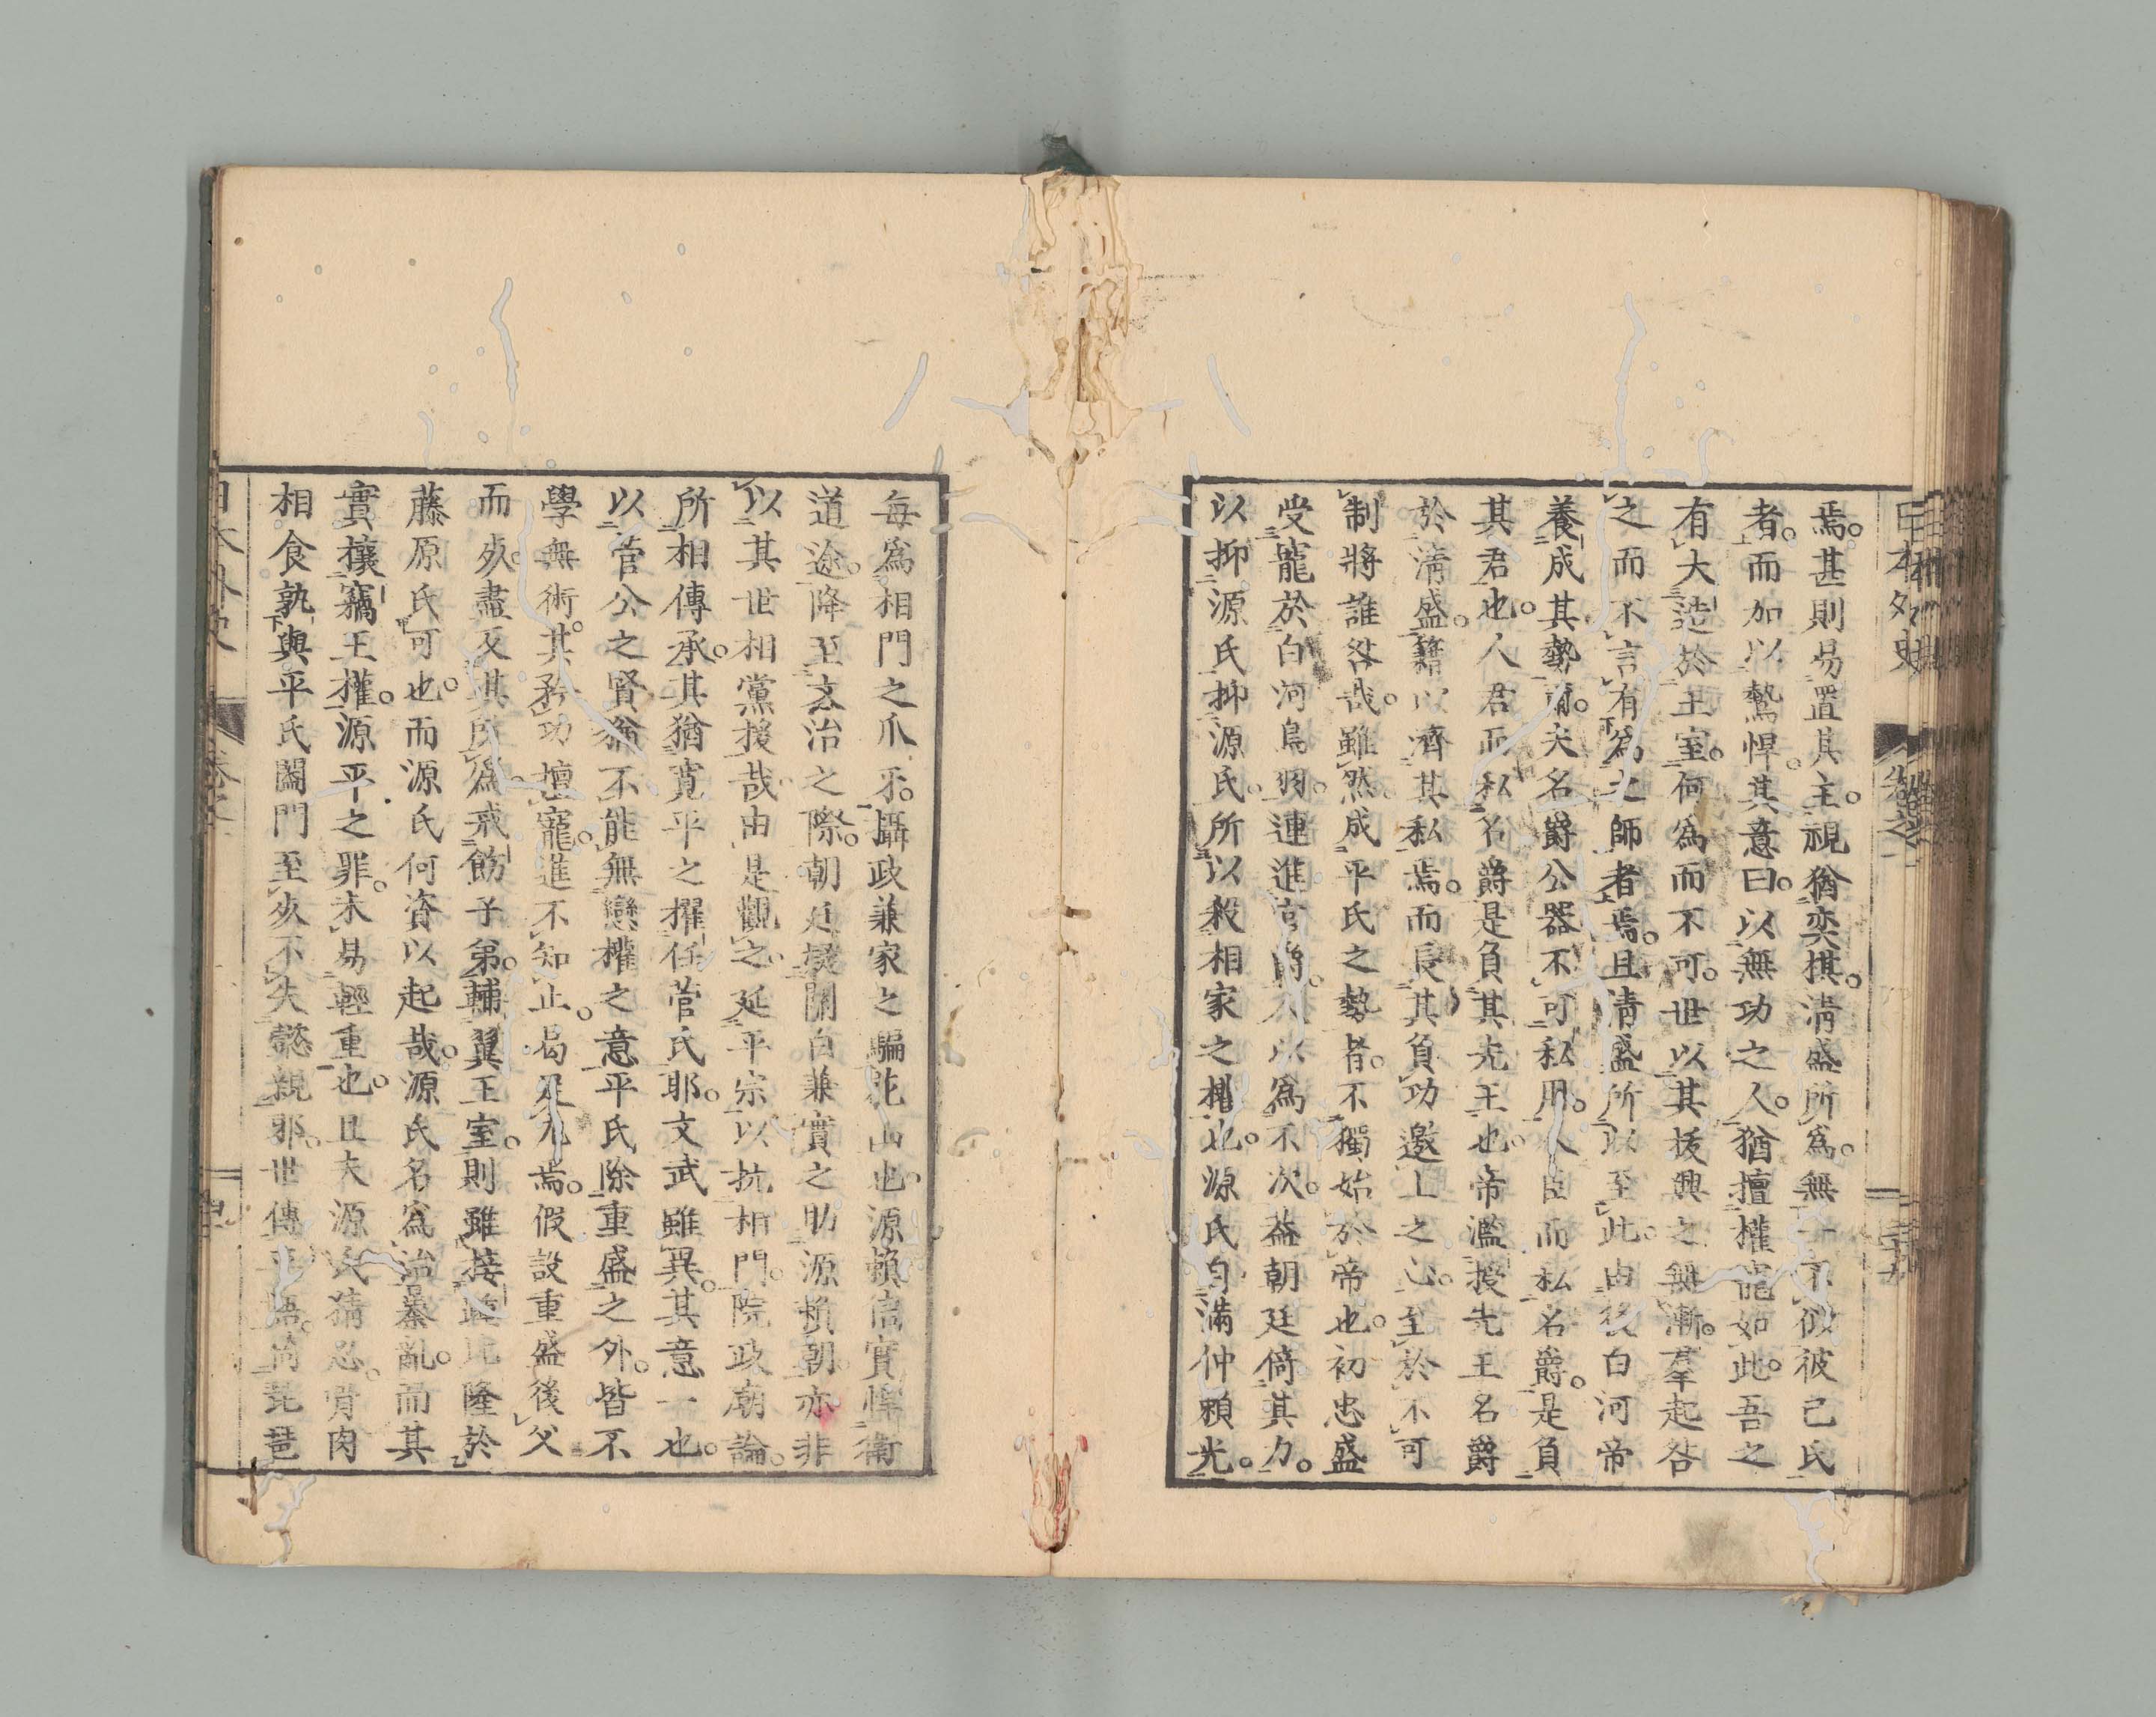 焉。甚則易置其主。視猶奕棋。淸盛所爲。無一不倣彼己氏
者。而加以鷙悍。其意曰。以無功之人。猶擅權寵如此。吾之
有大造於王室。何爲而不可。世以其拔興之無漸。羣起咎
之而不言有爲之師者焉。且淸盛所以至此。由後白河帝
養成其勢爾。夫名爵公器不可私用。人臣而私名爵。是負
其君也。人君而私名爵是負其先王也。帝濫授先王名爵
於淸盛。籍以濟其私焉。而長其負功邀上之心。至於不可
制將誰咎哉。雖然成平氏之勢者。不獨始於帝也。初忠盛
受寵於白河鳥羽。連進官爵。人以爲不次。蓋朝廷倚其力。
以抑源氏抑源氏。所以殺相家之權也。源氏自滿仲賴光。
每爲相門之爪牙。攝政兼家之騙花山也。源賴信實悍衛
道途。降至文治之際。朝廷擬關白兼實之助源賴朝。亦非
以其世相黨援哉。由是觀之。延平宗以抗相門。院政廟論。
所相傳承。其猶寬平之擢任菅氏耶。文武雖異。其意一也。
以菅公之賢。猶不能無戀權之意。平氏除重盛之外。皆不
學無術。其矜功擅寵。進不知止。曷足尤焉。假設重盛後父
而死。盡反其所爲。戒飭子弟。輔翼王室。則雖接踵比隆於
藤原氏可也。而源氏何資以起哉。源氏名爲治暴亂。而其
實攘竊王權。源平之罪。未易輕重也。且夫源氏猜忍。骨肉
相食。孰與平氏闔門至死不失懿親耶。世傳平語。倚琵琶
日本外史
卷之一
三十九
日本外史
卷之一
四十